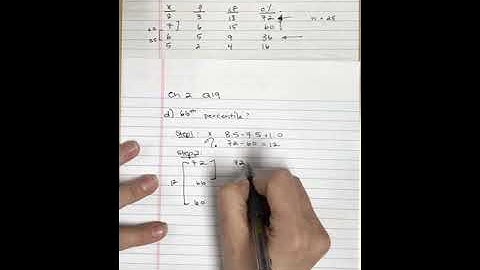 x f cf c%
8 3 18 72 n = 25
7 6 15 60
6 5 9 36
5 2 4 16
Ch 2 Q19
d) 66th percentile?
Step1: x 8.5-7.5=1.0
% 72-60=12
Step2:
72 72
12 66
60